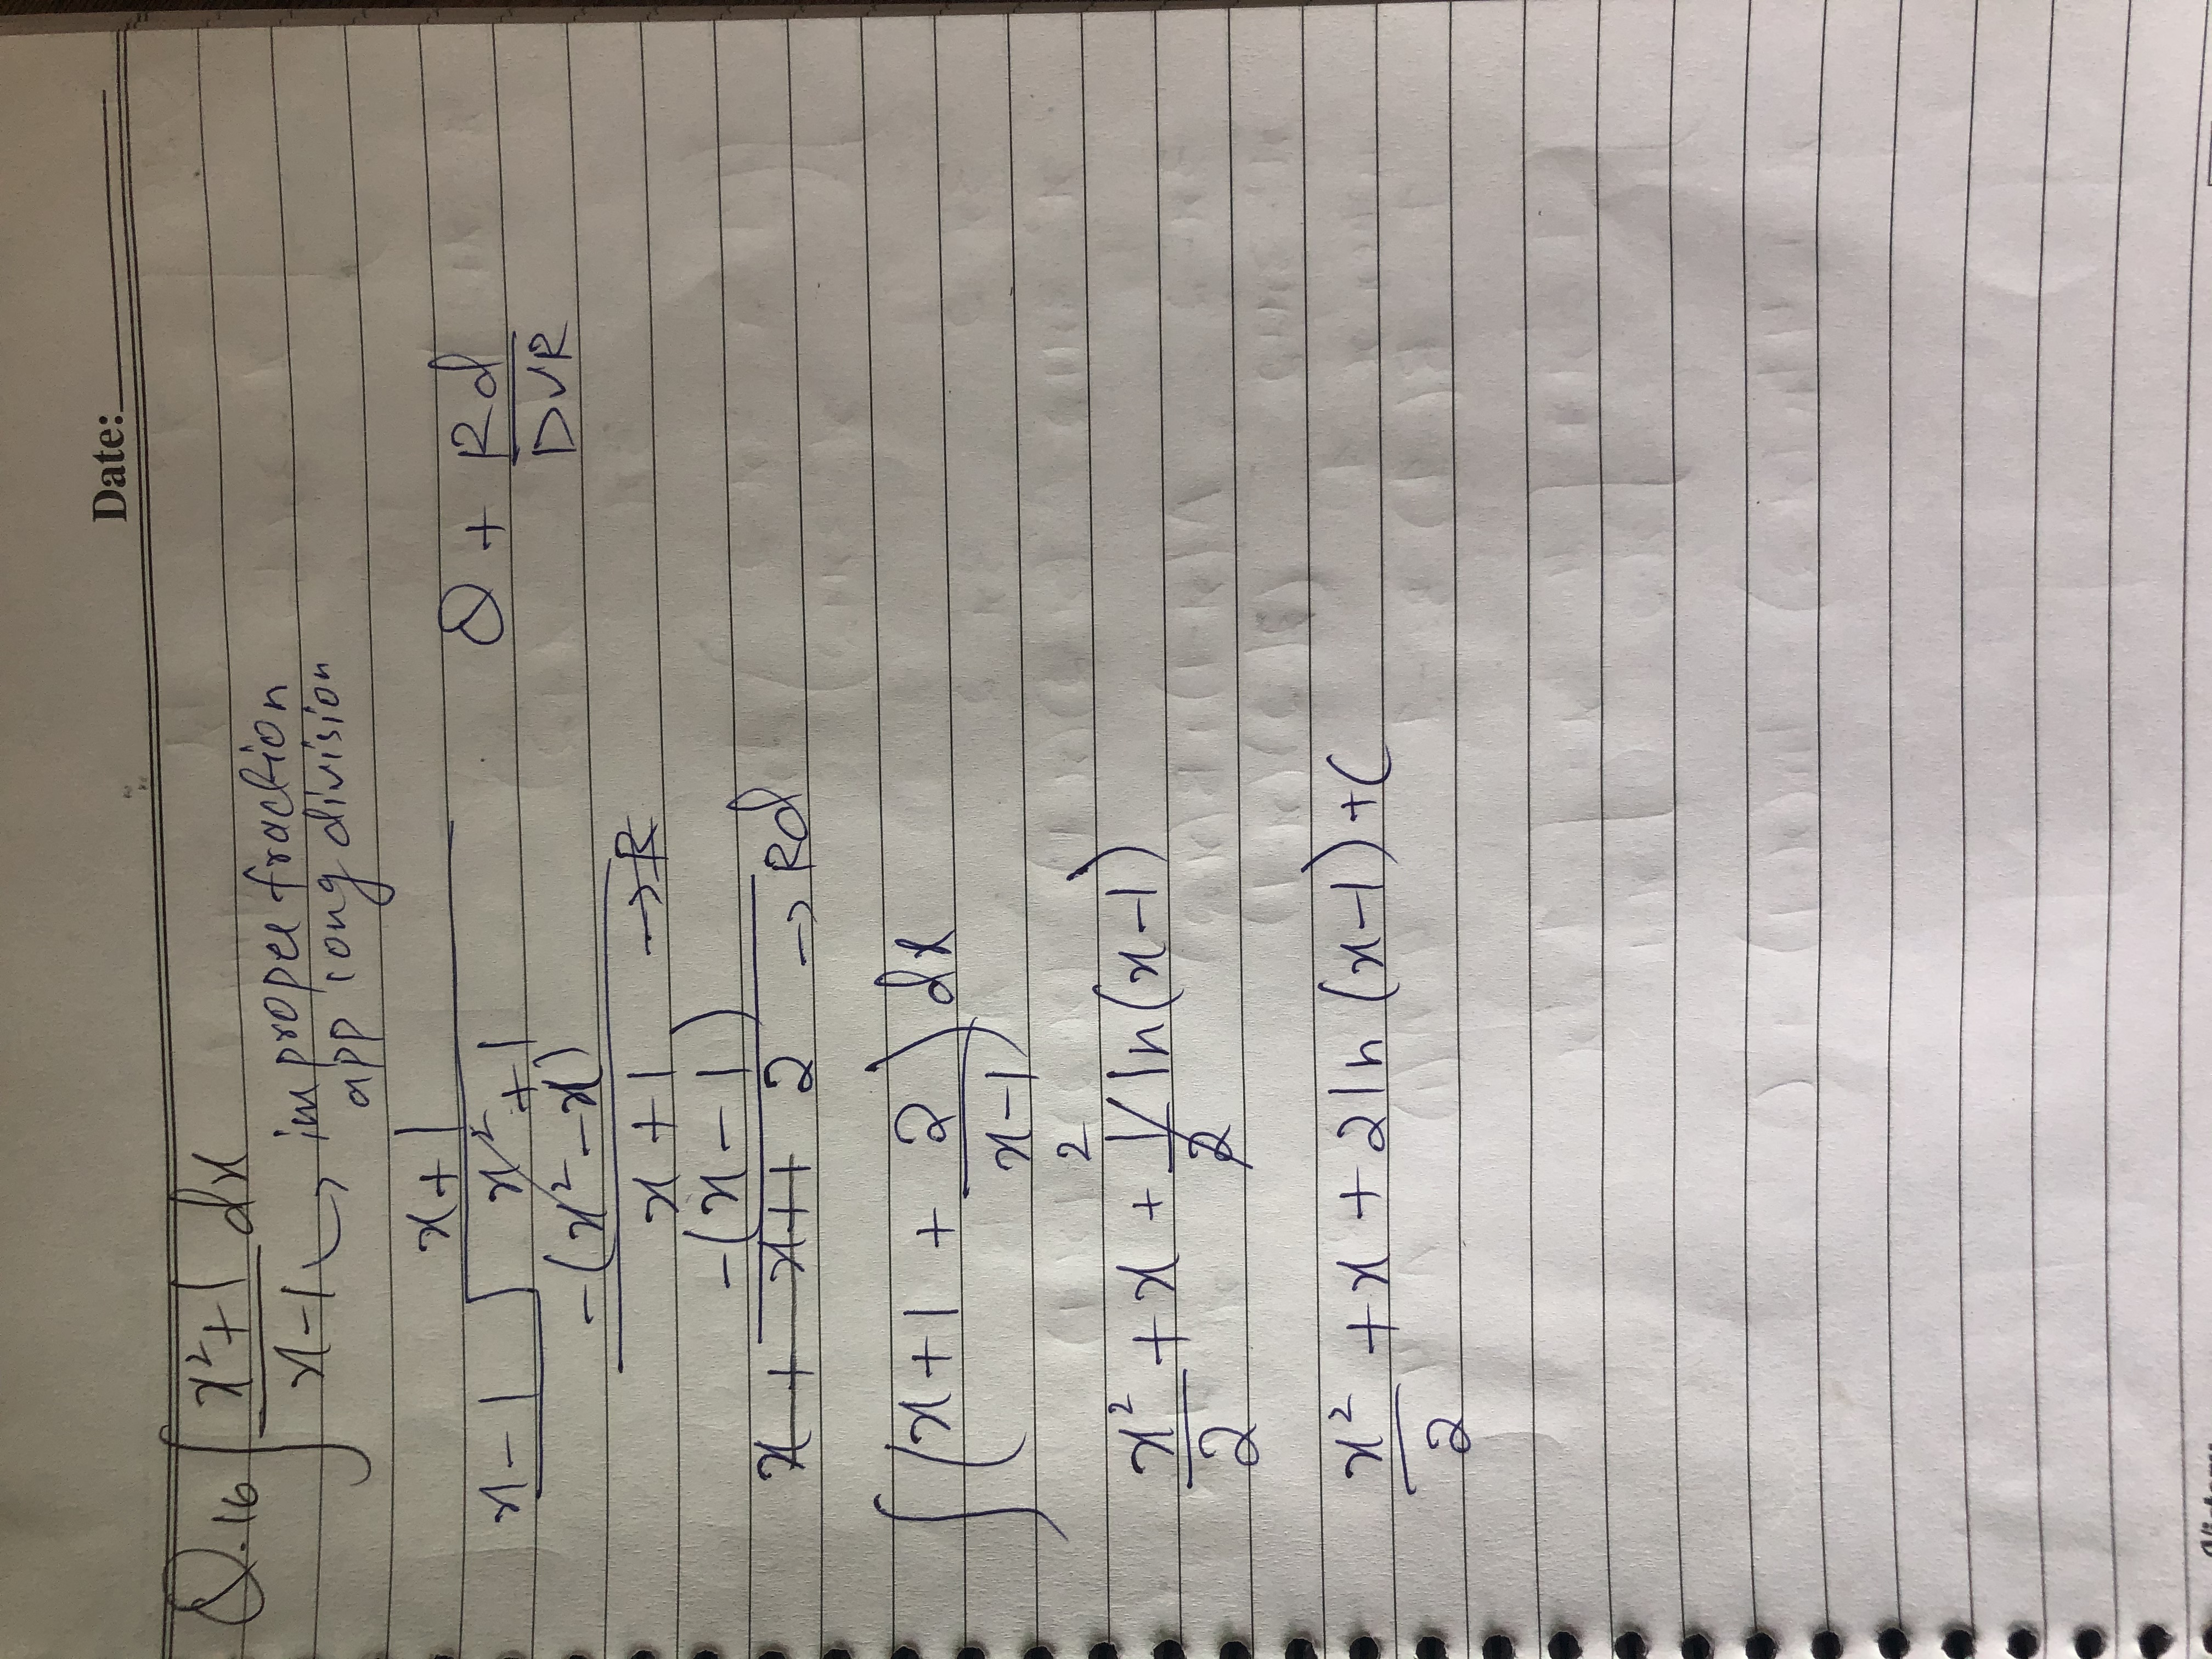 Date:
Q.16 ∫ x²+1 / x-1 dx
→ improper fraction
app long division
x+1
x-1 √ x² +1
Q + Rd / DVR
-(x² -x)
x +1 → R
-(x - 1)
x + x++ 2 → Rd
∫ (x+1 + 2 / x-1) dx
2
x² / 2 + x + 1 / 2 ln(x-1)
x² / 2 + x + 2 ln (x-1) + C